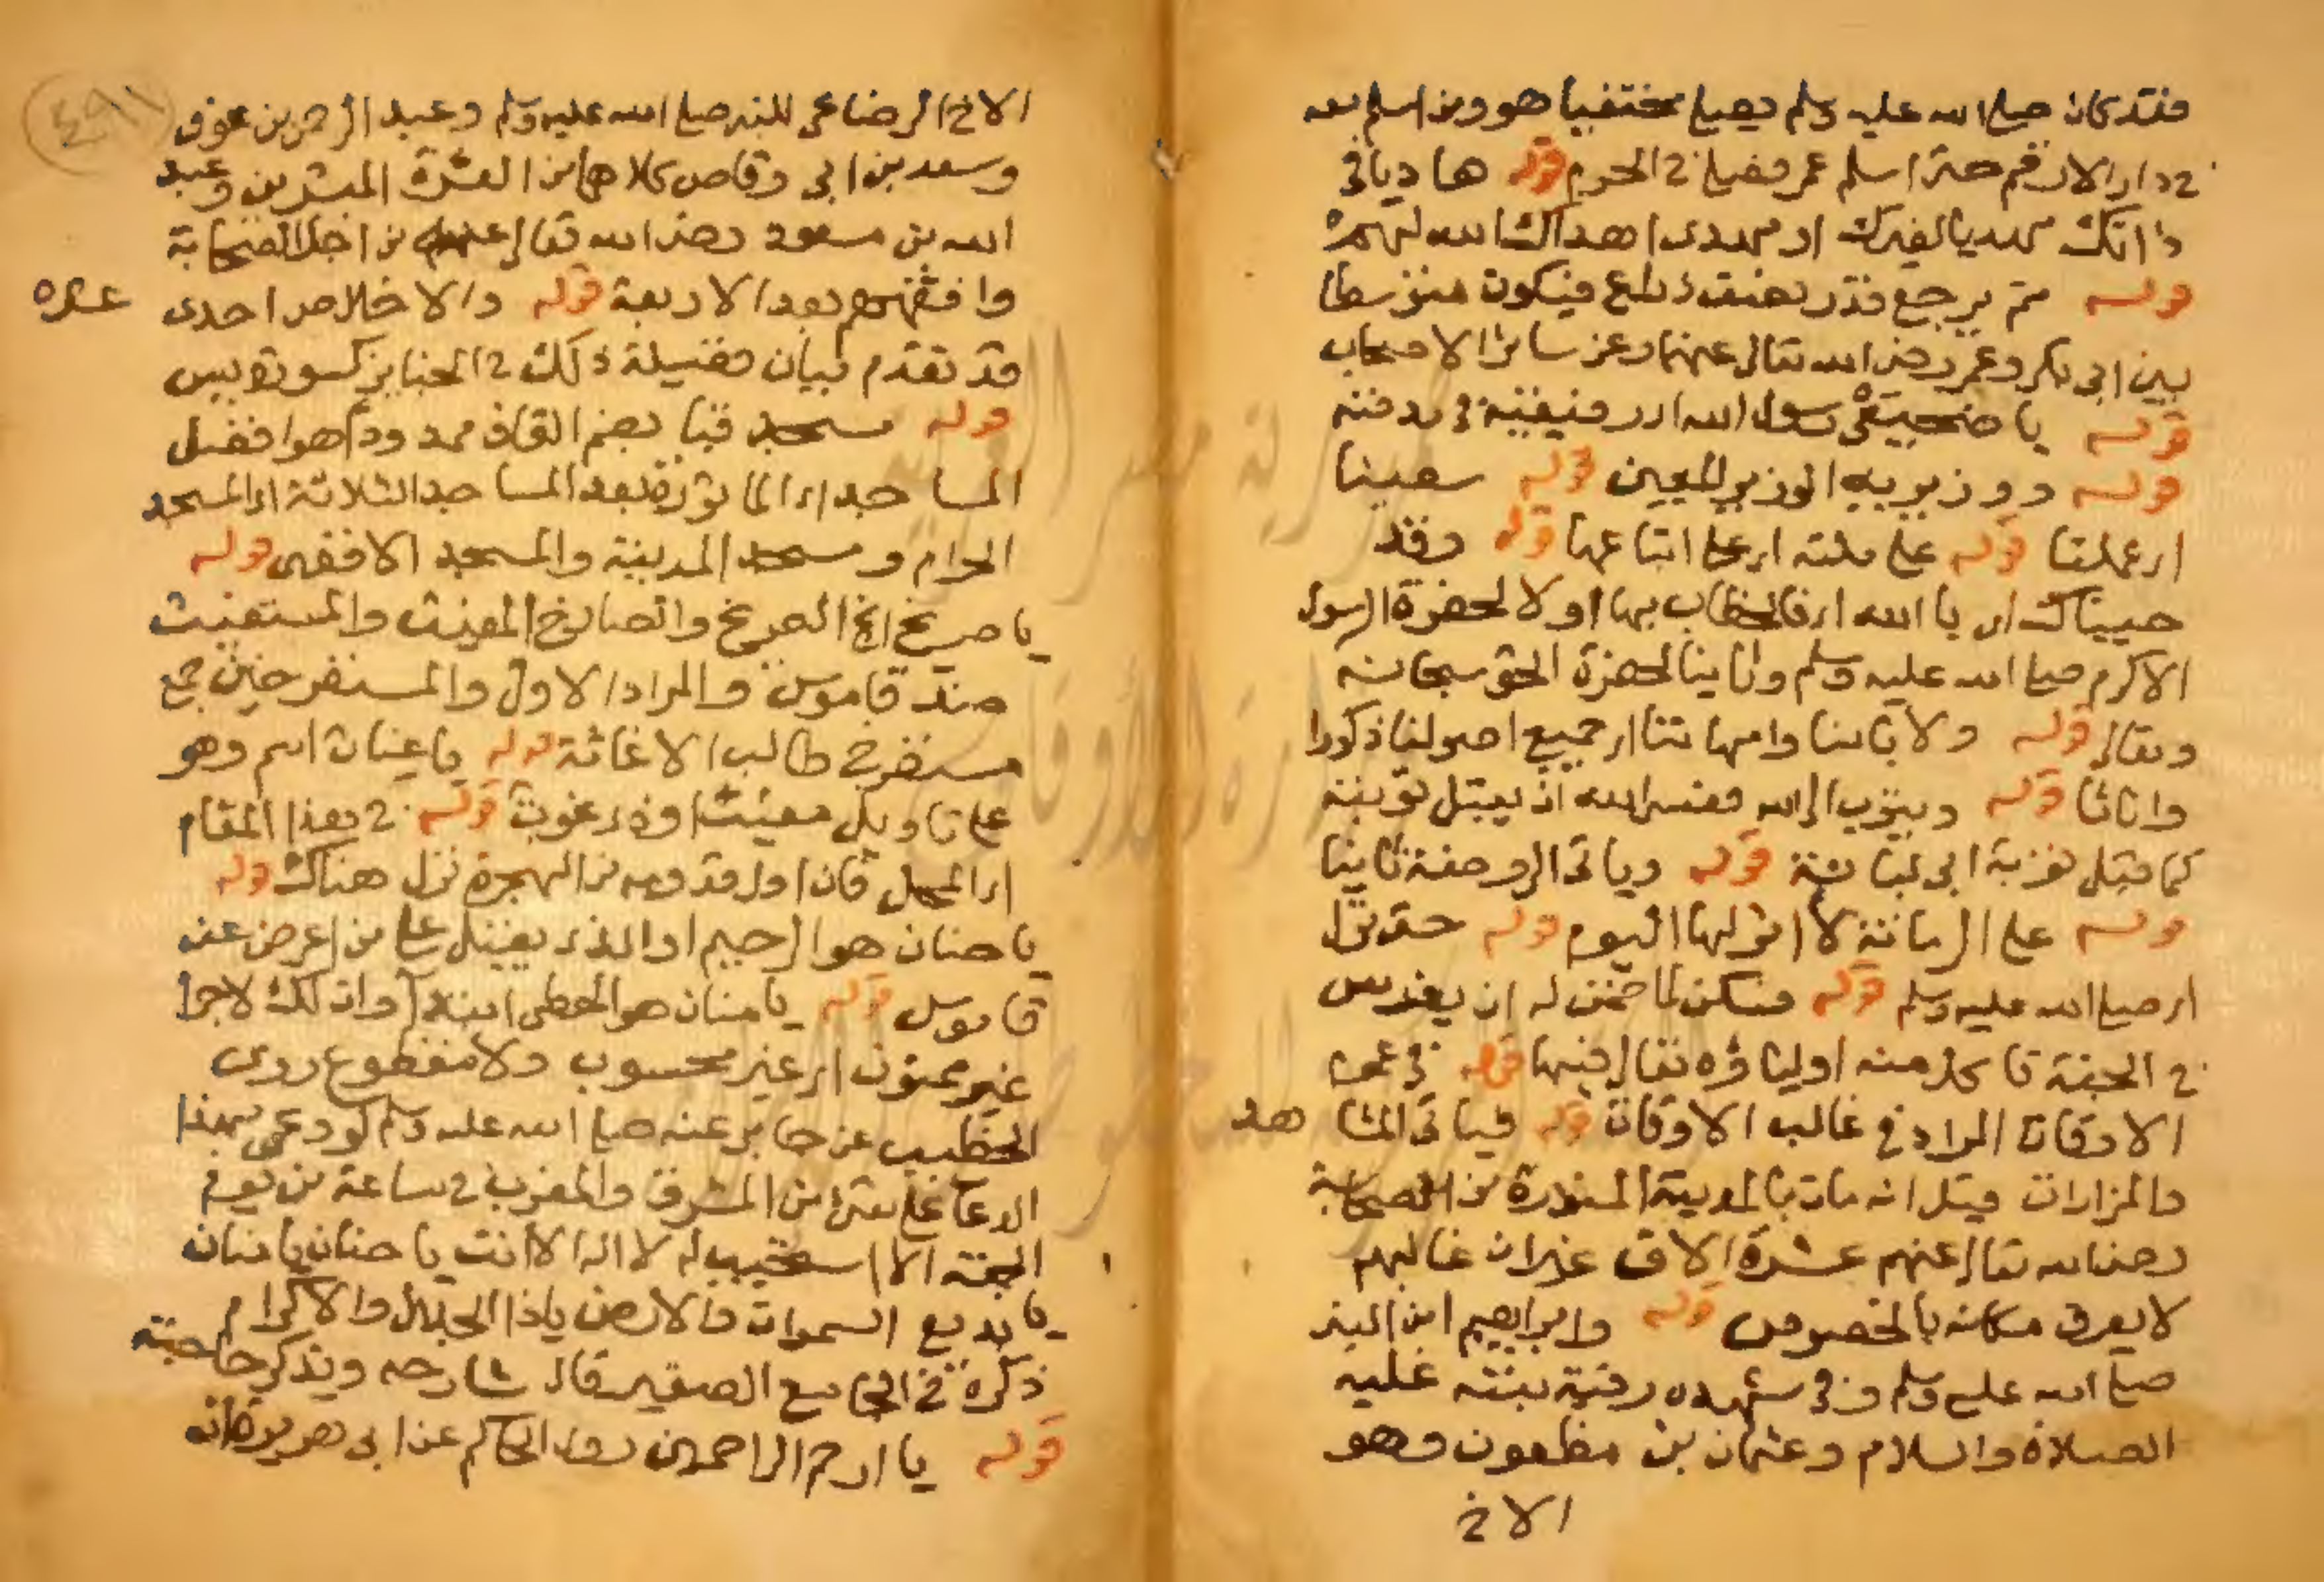 فقد كان صلى الله عليه وسلم يصلي مختفيا هو ومن اسلم معه
في دار الارقم حتى اسلم عمر فصلى في الحرم قوله هاديا اي
دالك مهديا لغيرك او مهدى اهداك الله لهم
قوله ثم يرجع قدر نصف ذراع فيكون متوسطا
بين ابى بكر وعمر رضى الله تعالى عنهما وعن سائر الاصحاب
قوله يا ضجيعي رسول الله اى رفيقيه في مدفنه
قوله ووزيريه الوزير المعين قوله سعينا
اى عملنا قوله على ملته اى على اتباعها قوله وقد
جيناك اى يا الله اى فالخطاب بها اولا لحضرة الرسول
الاكرم صلى الله عليه وسلم وثانيا لحضرة الحق سبحانه
وتعالى قوله ولابائنا وامهاتنا اى جميع اصولنا ذكورا
واناثا قوله ويتوب الى الله فعسى الله ان يقبل توبته
كما قبل توبة ابى لبابة قوله وياتى الروضة ثانيا
قوله على الرمانة لا اثر لها اليوم قوله حتى نزل
اى صلى الله عليه وسلم قوله فسكن لما ضمن له ان يغرس
في الجنة تاكل منه اولياؤه تعالى فيها قوله في عموم
الاوقات المراد في غالب الاوقات قوله فياتى المشا هد
والمزارات قيل انه مات بالمدينة المنورة من الصحابة
رضى الله تعالى عنهم عشرة الاف غير ان غالبهم
لا يعرف مكانه بالخصوص قوله وابراهيم ابن النبى
صلى الله عليه وسلم وفي مشهده رقية بنته عليه
الصلاة والسلام وعثمان بن مظعون وهو
الاخ
الاخ الرضاعى للنبى صلى الله عليه وسلم وعبد الرحمن بن عوف
وسعد بن ابى وقاص كلاهما من العشرة المبشرين وعبد
الله بن مسعود رضى الله تعالى عنهم من اجل الصحابة
وافقههم بعد الاربعة قوله والاخلاص احدى عشره
قد تقدم بيان فضيلة ذلك في الجنايز كسورة يس
قوله مسجد قبا بضم القاف ممدودا هو افضل
المساجد اى الماثورة بعد المساجد الثلاثة اى المسجد
الحرام ومسجد المدينة والمسجد الاقصى قوله
يا صريخ الخ الصريخ والصارخ المغيث والمستغيث
ضد قاموس والمراد الاول والمستصرخين جمع
مستصرخ طالب الاغاثة قوله يا غياث اسم وهو
على تاويل مغيث او ذى غوث قوله في هذا المقام
اى المحل فان اول قدومه من الهجرة نزل هناك قوله
يا حنان هو الرحيم او الذى يقبل على من اعرض عنه
قاموس قوله يا منان هو المعطى ابتداء وان لك لاجرا
غير ممنون اى غير محسوب ولا مقطوع روى
الخطيب عن جابر عنه صلى الله عليه وسلم لو دعى بهذا
الدعا على شئ من المشرق والمغرب في ساعة من يوم
الجمعة الا استجيب له لا اله الا انت يا حنان يا منان
يا بديع السموات والارض يا ذا الجلال والاكرام
ذكره في الجامع الصغير قال شارحه ويذكر حاجته
قوله يا ارحم الراحمين روى الحاكم عن ابى هريرة انه